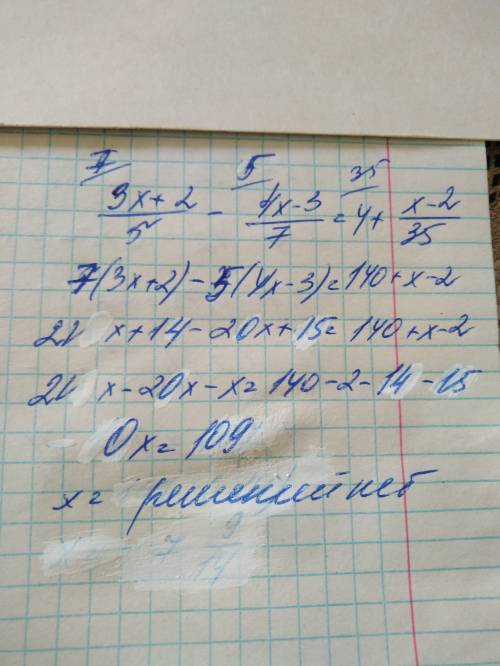 7 5 35
3x+2/5 - 4x-3/7 = 4+ x-2/35
7(3x+2)-5(4x-3)=140+x-2
21x+14-20x+15=140+x-2
21x-20x-x=140-2-14-15
0x=109
x= решений нет
9
14